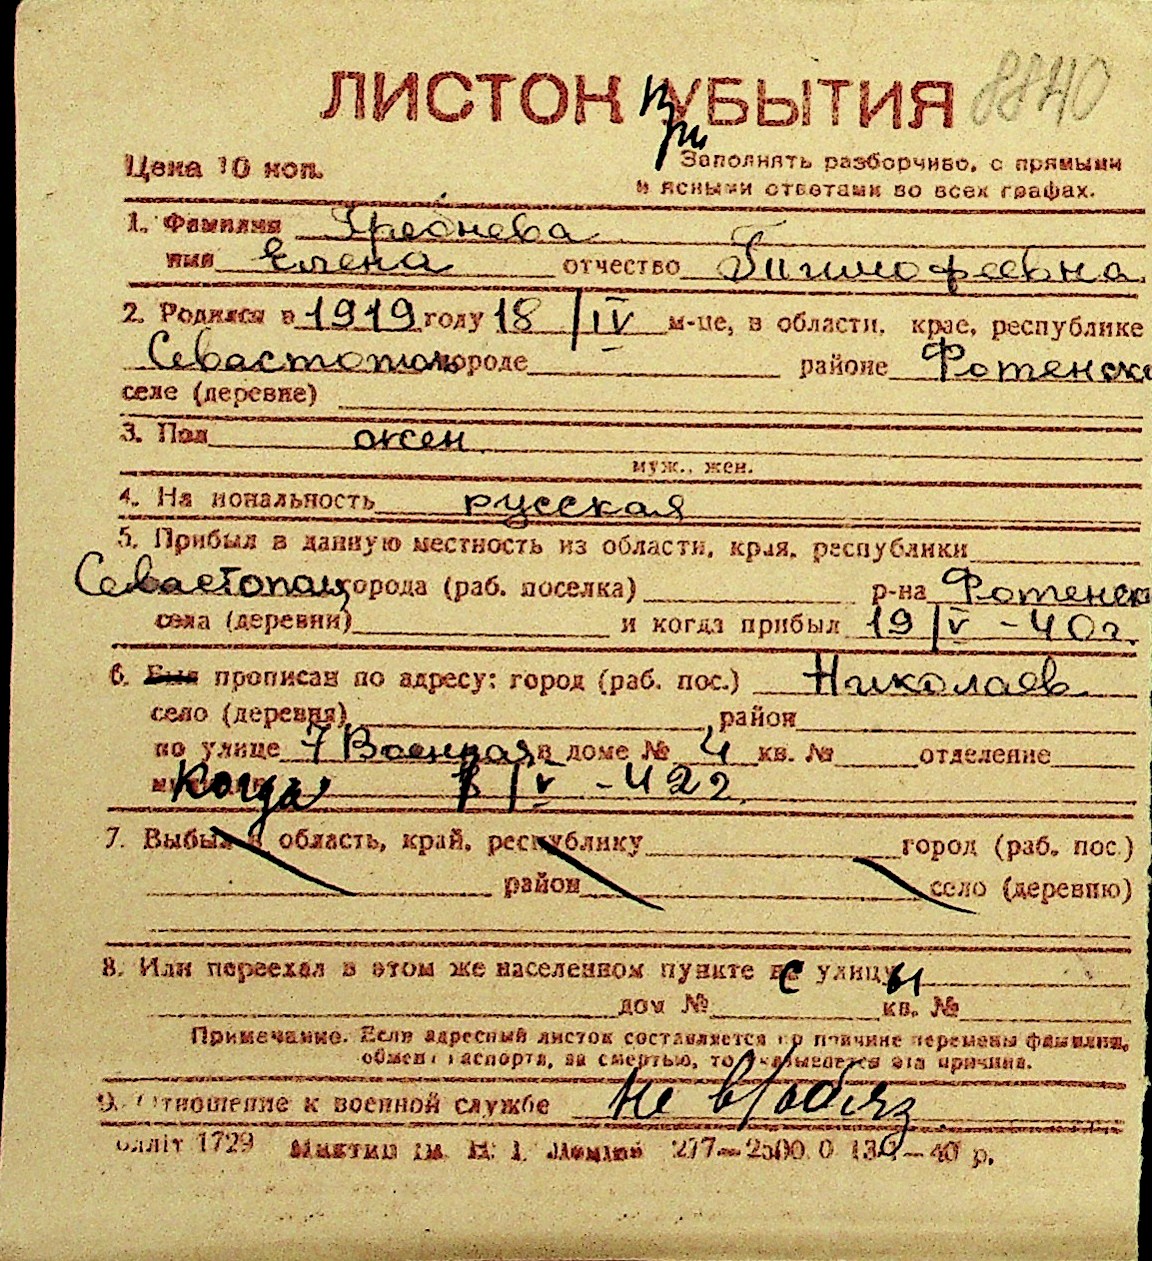 ЛИСТОК при УБЫТИЯ 8840
Цена 10 коп.
Заполнять разборчиво, с прямыми
и ясными ответами во всех графах.
1. Фамилия Гребнева
имя Елена отчество Тимофеевна
2. Родился в 1919 году 18/IV м-це, в области, крае, республике
Севастополь городе районе Фотенск
селе (деревне)
3. Пол жен
муж., жен.
4. Национальность русская
5. Прибыл в данную местность из области, края, республики
Севастополь города (раб. поселка) р-на Фотенск
села (деревни) и когда прибыл 19/V - 40 г.
6. Был прописан по адресу: город (раб. пос.) Николаев
село (деревня) район
по улице 7 Военная в доме № 4 кв. № отделение
Когда 8/V - 42 г.
7. Выбыл в область, край, республику город (раб. пос.)
район село (деревню)
8. Или переехал в этом же населенном пункте с улицы
дом № кв. №
Примечание. Если адресный листок составляется по причине перемены фамилии,
обмена паспорта, за смертью, то указывается эта причина.
9. Отношение к военной службе не в/обяз
1729 277—2500 40 р.